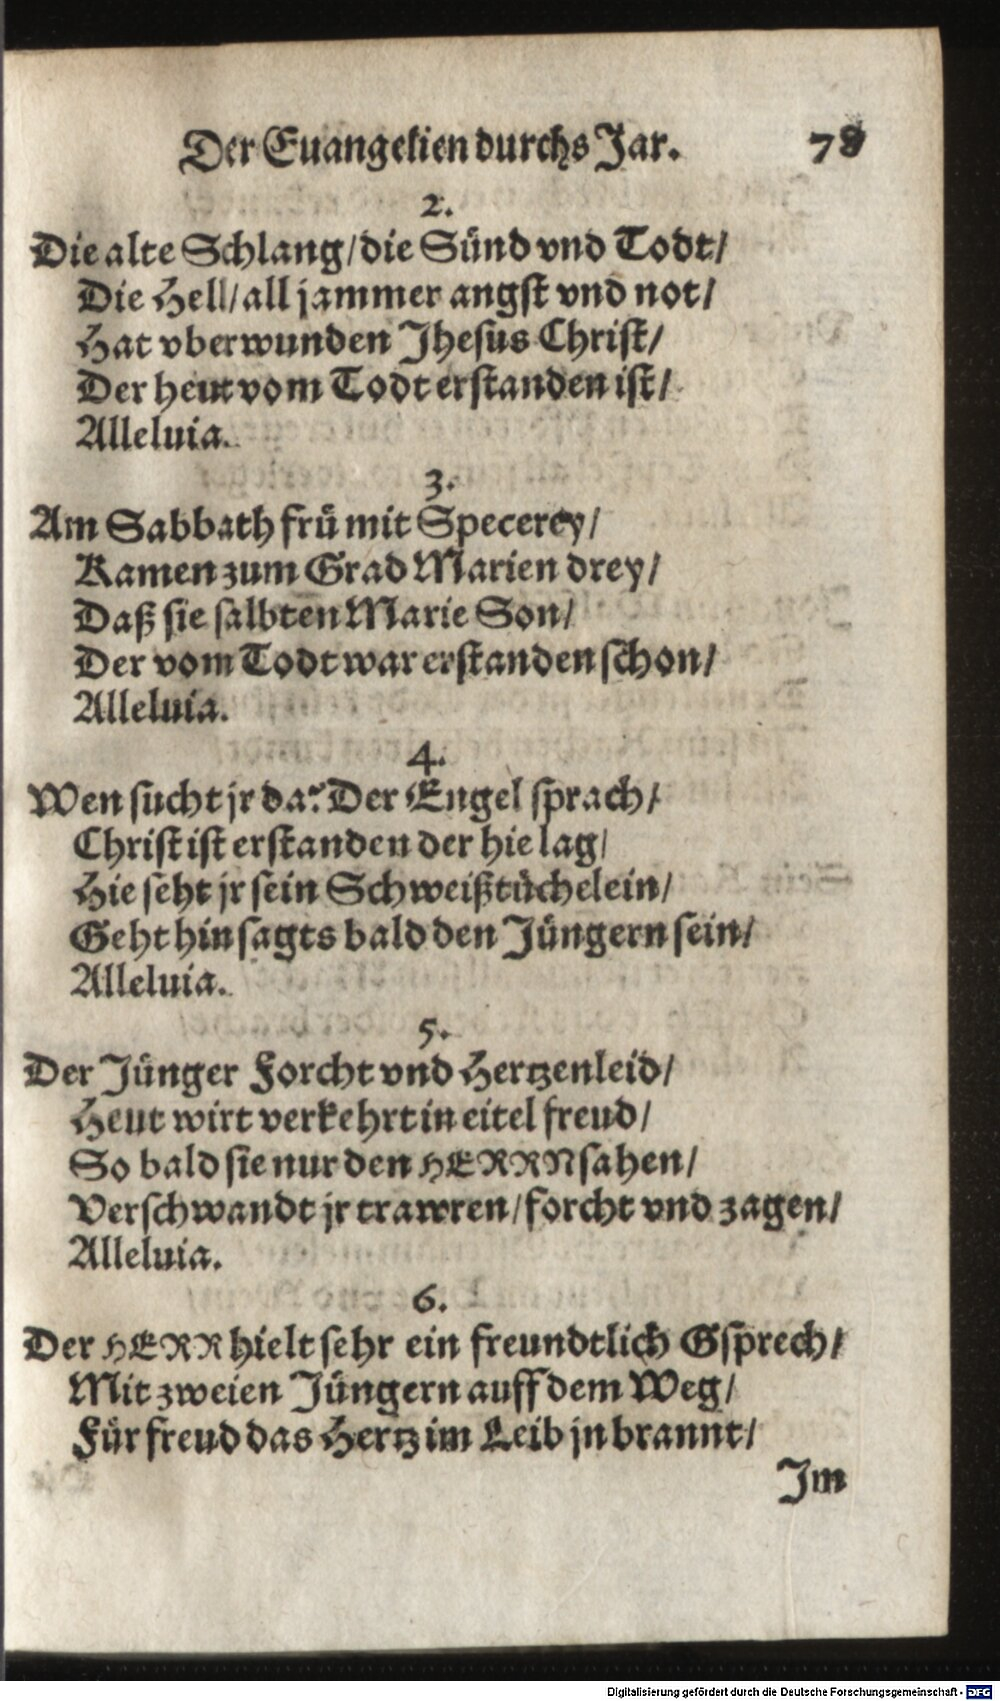 Der Euangelien durchs Jar. 78
2.
Die alte Schlang/die Sünd vnd Todt/
Die Hell/all jammer angst vnd not/
Hat vberwunden Jhesus Christ/
Der heut vom Todt erstanden ist/
Alleluia.
3.
Am Sabbath frü mit Specerey/
Kamen zum Grab Marien drey/
Daß sie salbten Marie Son/
Der vom Todt war erstanden schon/
Alleluia.
4.
Wen sucht jr da? Der Engel sprach/
Christ ist erstanden der hie lag/
Hie seht jr sein Schweißtüchelein/
Geht hin sagts bald den Jüngern sein/
Alleluia.
5.
Der Jünger Forcht vnd Hertzenleid/
Heut wirt verkehrt in eitel freud/
So bald sie nur den HERRN sahen/
Verschwandt jr trawren/forcht vnd zagen/
Alleluia.
6.
Der HERR hielt sehr ein freundtlich Gsprech/
Mit zweien Jüngern auff dem Weg/
Für freud das Hertz im Leib jn brannt/
Jm
Digitalisierung gefördert durch die Deutsche Forschungsgemeinschaft - DFG